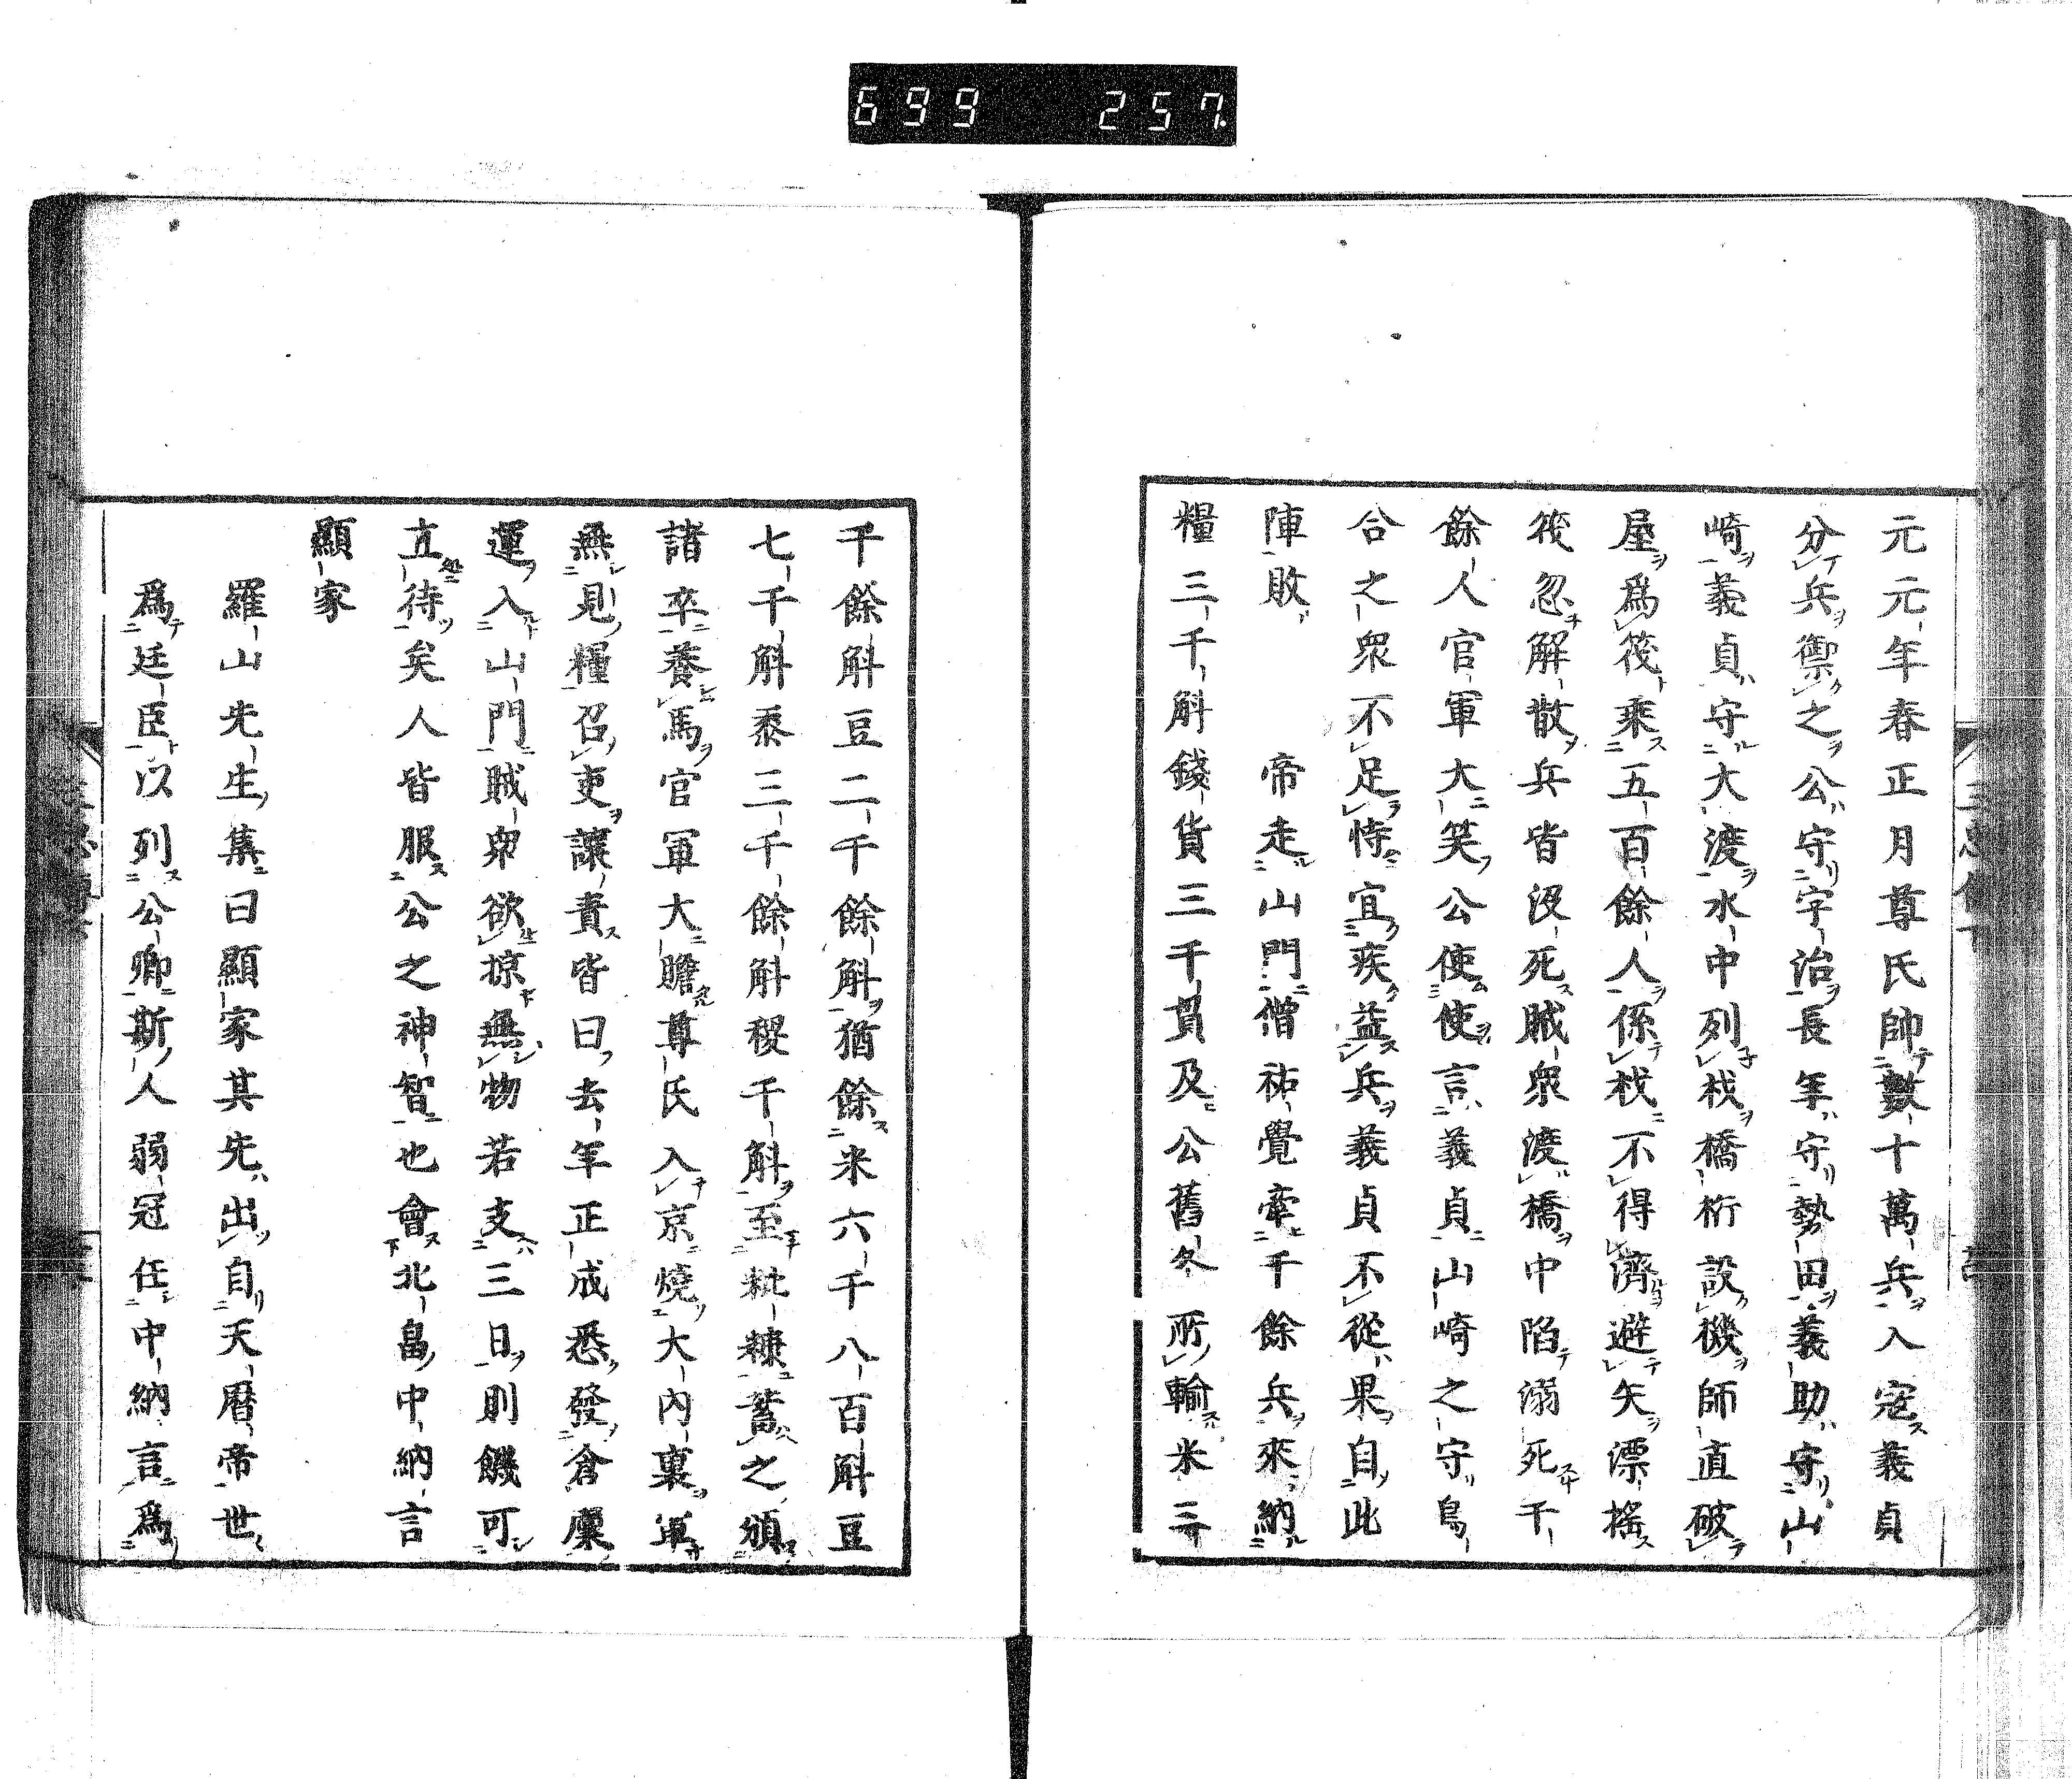 699 257.
元元年春正月尊氏帥數十萬兵入寇義貞
分兵禦之公守宇治長年守勢田義助守山
崎義貞守大渡水中列杙橋桁設機師直破
屋爲筏乘五百餘人係杙不得濟避矢漂搖
筏忽解散兵皆沒死賊衆渡橋中陷溺死千
餘人官軍大笑公使使言義貞山崎之守烏
合之衆不足恃宜疾益兵義貞不從果自此
陣敗 帝走山門僧祐覺牽千餘兵來納
糧三千斛錢貨三千貫及公舊冬所輸米三
千餘斛豆二千餘斛猶餘米六千八百斛豆
七千斛黍三千餘斛稷千斛至粃糠蓄之頒
諸卒養馬官軍大贍尊氏入京燒大內裏軍
無見糧召吏讓責皆曰去年正成悉發倉廩
運入山門賊衆欲掠無物若支三日則饑可
立待矣人皆服公之神智也會北畠中納言
顯家
羅山先生集曰顯家其先出自天曆帝世
爲廷臣以列公卿斯人弱冠任中納言爲